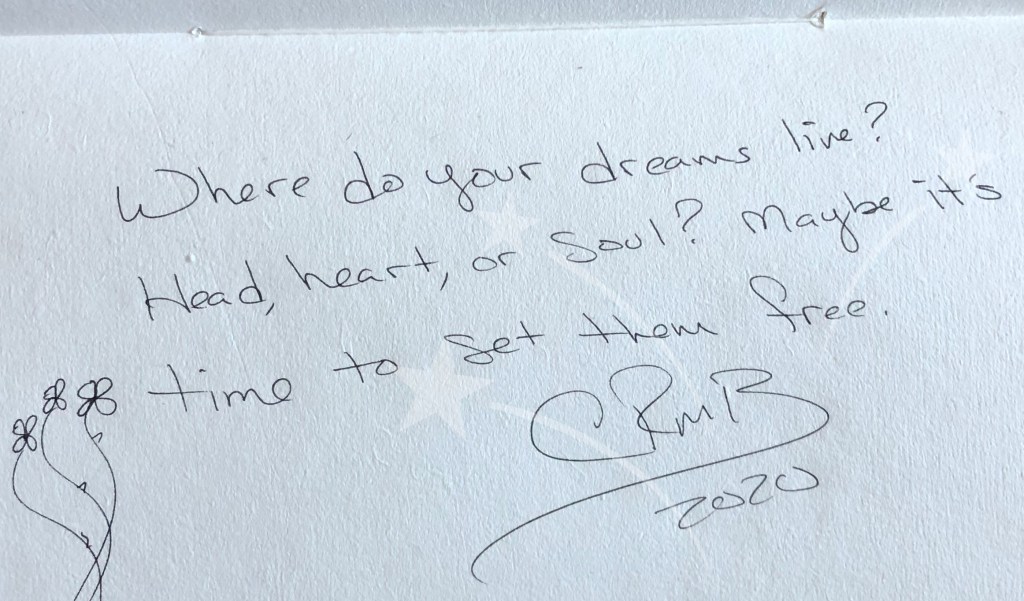 Where do your dreams live?
Head, heart, or Soul? Maybe it's
time to set them free.
CRMB
2020